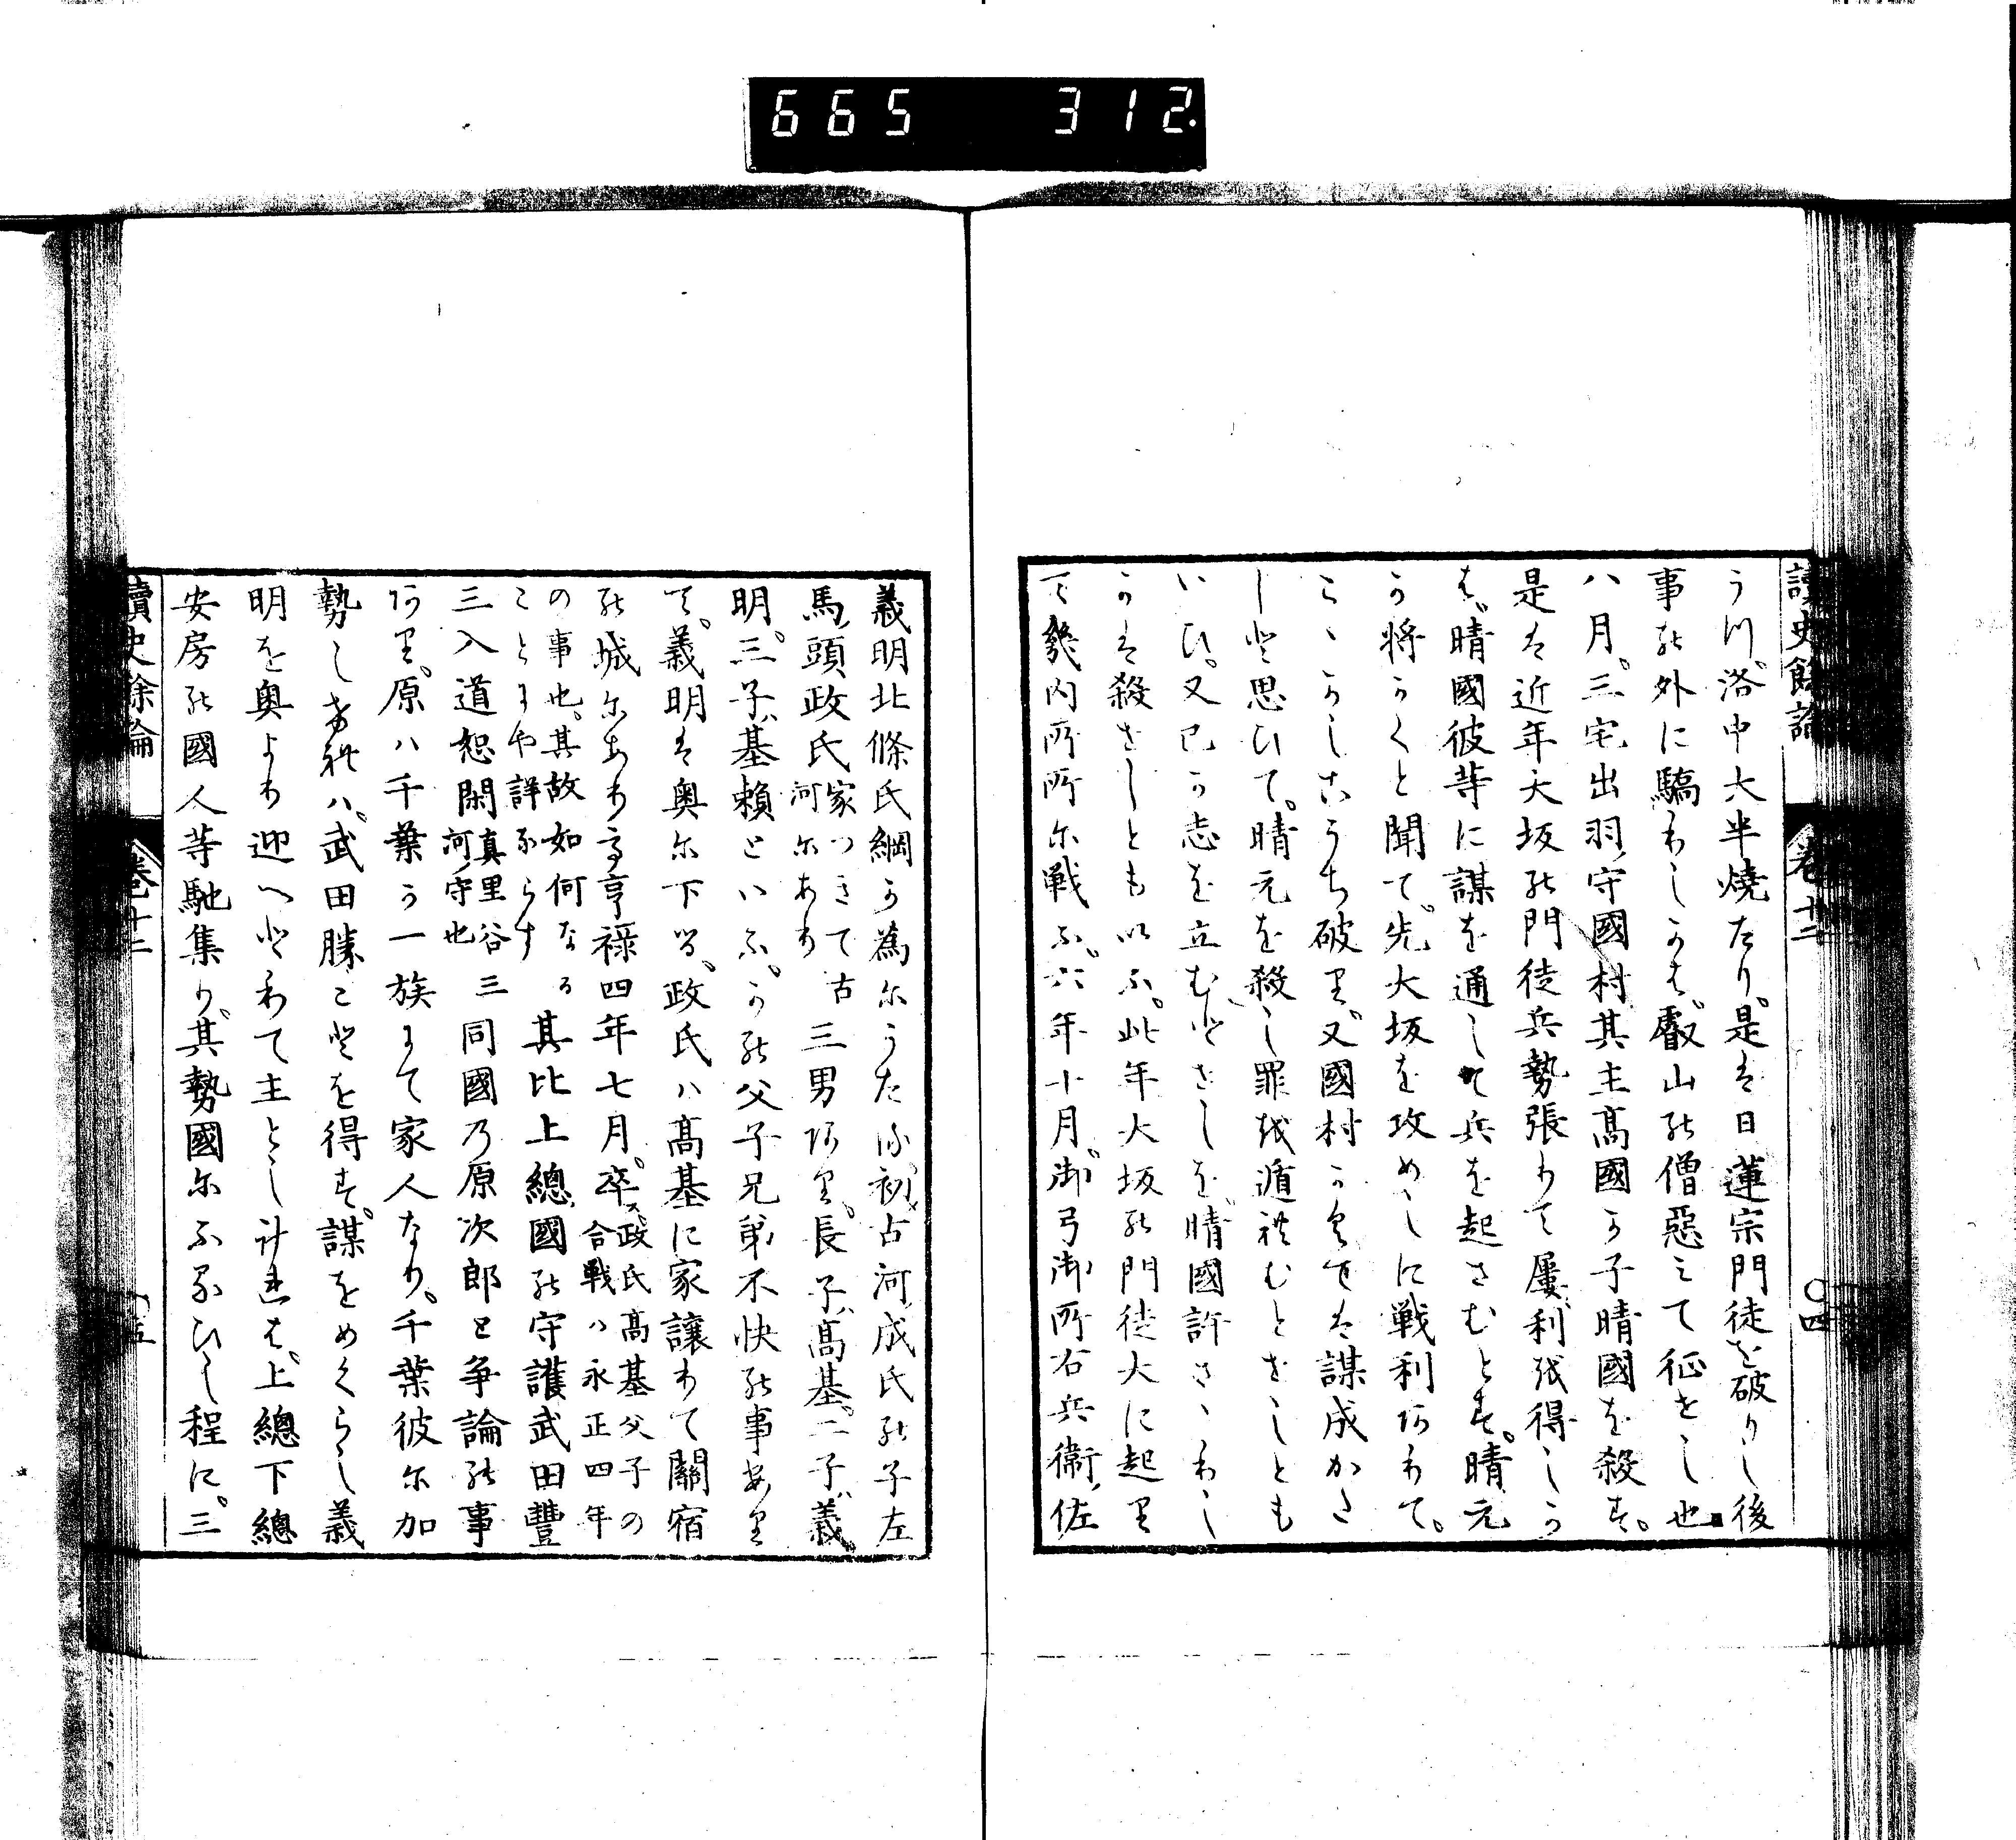 665 312
讀史餘論 卷十二 ○四
うつ。洛中大半燒たり。是は日蓮宗門徒を破りし後
事の外に驕りしかば、叡山の僧惡みて征せし也
八月。三宅出羽守國村其主髙國か子晴國を殺す。
是は近年大坂の門徒兵勢張りて屢利を得しか
ば、晴國彼等に謀を通して兵を起さむとす。晴元
か將かくと聞て。先大坂を攻めしに戦利ありて。
こゝかしこうち破り。又國村かくては謀成かた
しと思ひて。晴元を殺し罪を遁れむとせしとも
いひ。又己か志を立むとせしを。晴國許さゝりし
かは殺せしともいふ。此年大坂の門徒大に起り
て幾内所所に戦ふ。六年十月。御弓御所右兵衞佐
義明北條氏綱か爲にうたる。初メ古河成氏の子左
馬頭政氏家つきて古河にあり三男あり。長子髙基。二子義
明。三子基賴といふ。かの父子兄弟不快の事ありて。
義明は奥に下る。政氏ハ髙基に家讓りて關宿
の城にあり享禄四年七月。卒ス政氏髙基父子の合戰ハ永正四年
の事也。其故如何なることにや詳ならす其比上總國の守護武田豐
三入道恕閑真里谷三河ノ守也同國乃原次郎と争論の事
あり。原ハ千葉か一族にて家人なり。千葉彼に加
勢しければ。武田勝ことを得す。謀をめくらし義
明を奥より迎へとりて主とし計れは。上總下總
安房の國人等馳集り。其勢國にふるひし程に。三
讀史餘論 卷十二 ○五